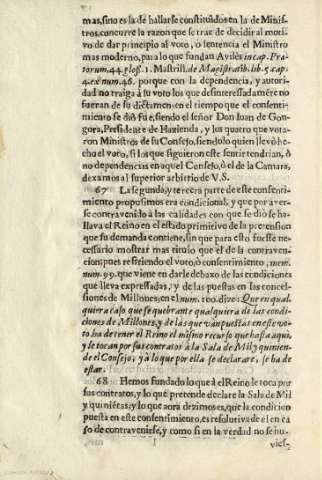 mas, sino es la de hallarse constituidos en la de Minis-
tros, concurre la razon que se trae de decidir al moti-
vo de dar principio al voto, o sentencia el Ministro
mas moderno, para lo que fundan Avilès in cap. Præ-
torum. 44. glos. 1. Mastrill. de Magistratib. lib. 5. cap.
4. ex num. 46. porque con la dependencia, y autori-
dad no traiga à su voto los que desinteresadamēte no
fueran de su dictamen: en el tiempo que el consenti-
miento se diò fue, siendo el señor Don Juan de Gon-
gora, Presidente de Hazienda, y los quatro que vota-
ron Ministros de su Consejo, siendolo quien llevò he-
cho el voto, si los que siguieron este sentir tendrian, ò
no dependencias en aquel Consejo, ò el de la Camara,
dexamos al superior arbitrio de V.S.
67 La segunda, y tercera parte de este consenti-
miento propusimos era condicional, y que por aver-
se contravenido à las calidades con que se diò se ha-
llava el Reino en el estado primitivo de la pretension
que su demanda contiene, sin que para esto fuesse ne-
cessario mostrar mas titulo que el de la contraven-
cion, pues refiriendo el voto, ò consentimiento, mem.
num. 99. que viene en darle debaxo de las condiciones
que lleva expressadas, y de las puestas en las conces-
siones de Millones, en el num. 100. dize: Que en qual-
quiera caso que se quebrante qualquiera de las condi-
ciones de Millones, y de las que van puestas en este vo-
to ha de tener el Reino el mismo recurso que hasta aqui,
y se tocan por sus contratos à la Sala de Mil y quinien-
tas del Consejo; y à lo que por ella se declarare, se ha de
estar.
68 Hemos fundado lo que à el Reino le toca por
sus contratos, y lo que pretende declare la Sala de Mil
y quiniētas; y lo que aora dezimos es, que la condicion
puesta en este consentimiento, es resolutiva de èl en ca-
so de contravenirse, y como si en la verdad no se hu-
vies-